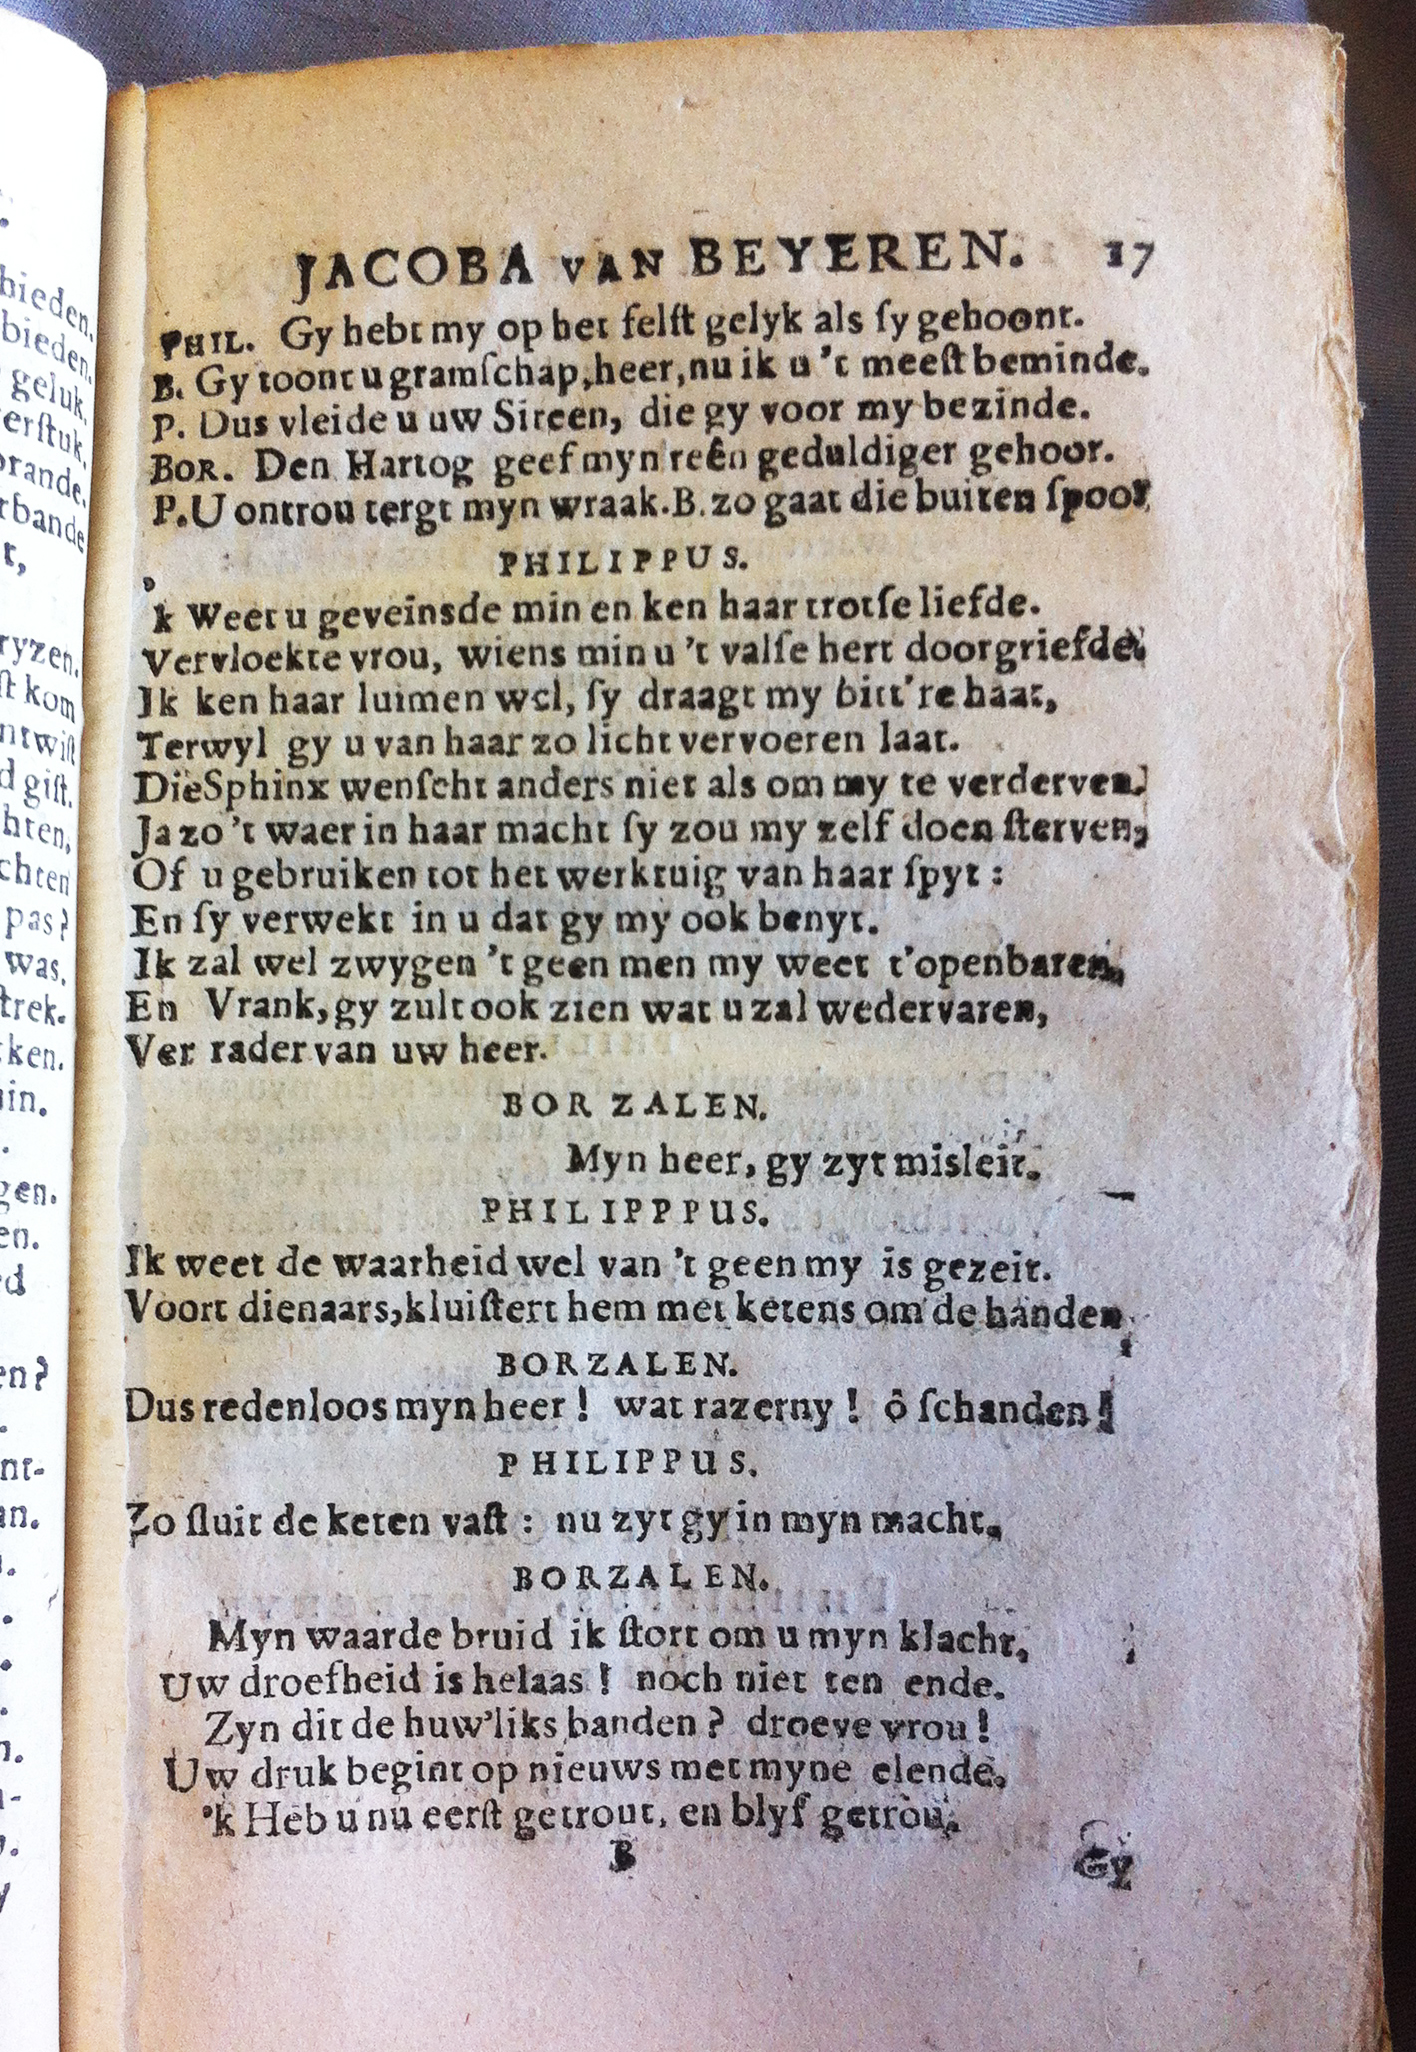 JACOBA VAN BEYEREN. 17
PHIL. Gy hebt my op het felſt gelyk als ſy gehoont.
B. Gy toont u gramſchap, heer, nu ik u 't meeſt beminde.
P. Dus vleide u uw Sireen, die gy voor my bezinde.
BOR. Den Hartog geef myn reên geduldiger gehoor.
P. U ontrou tergt myn wraak. B. zo gaat die buiten ſpoor,
PHILIPPUS.
'k Weet u geveinsde min en ken haar trotſe liefde.
Vervloekte vrou, wiens min u 't valſe hert doorgriefde.
Ik ken haar luimen wel, ſy draagt my bitt're haat,
Terwyl gy u van haar zo licht vervoeren laat.
Die Sphinx wenſcht anders niet als om my te verderven.
Ja zo 't waer in haar macht ſy zou my zelf doen ſterven,
Of u gebruiken tot het werktuig van haar ſpyt :
En ſy verwekt in u dat gy my ook benyt.
Ik zal wel zwygen 't geen men my weet t'openbaren,
En Vrank, gy zult ook zien wat u zal wedervaren,
Ver rader van uw heer.
BORZALEN.
Myn heer, gy zyt misleit.
PHILIPPPUS.
Ik weet de waarheid wel van 't geen my is gezeit.
Voort dienaars, kluiſtert hem met ketens om de handen.
BORZALEN.
Dus redenloos myn heer ! wat razerny ! ô ſchanden !
PHILIPPUS.
Zo ſluit de keten vaſt : nu zyt gy in myn macht.
BORZALEN.
Myn waarde bruid ik ſtort om u myn klacht,
Uw droefheid is helaas ! noch niet ten ende.
Zyn dit de huw'liks banden ? droeve vrou !
Uw druk begint op nieuws met myne elende.
'k Heb u nu eerſt getrout, en blyf getrou.
B Gy
bieden.
bieden.
geluk.
erſtuk.
rande.
rbande
ryzen.
ſt kom
ntwiſt
d giſt.
hten,
chten
pas ?
was.
trek.
ken.
in.
gen.
en.
rd
en ?
nt-
an.